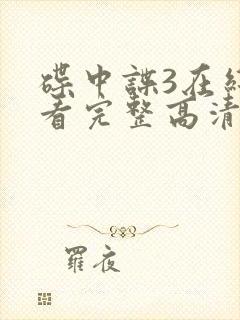 碟中諜3在
看完整高清
羅夜